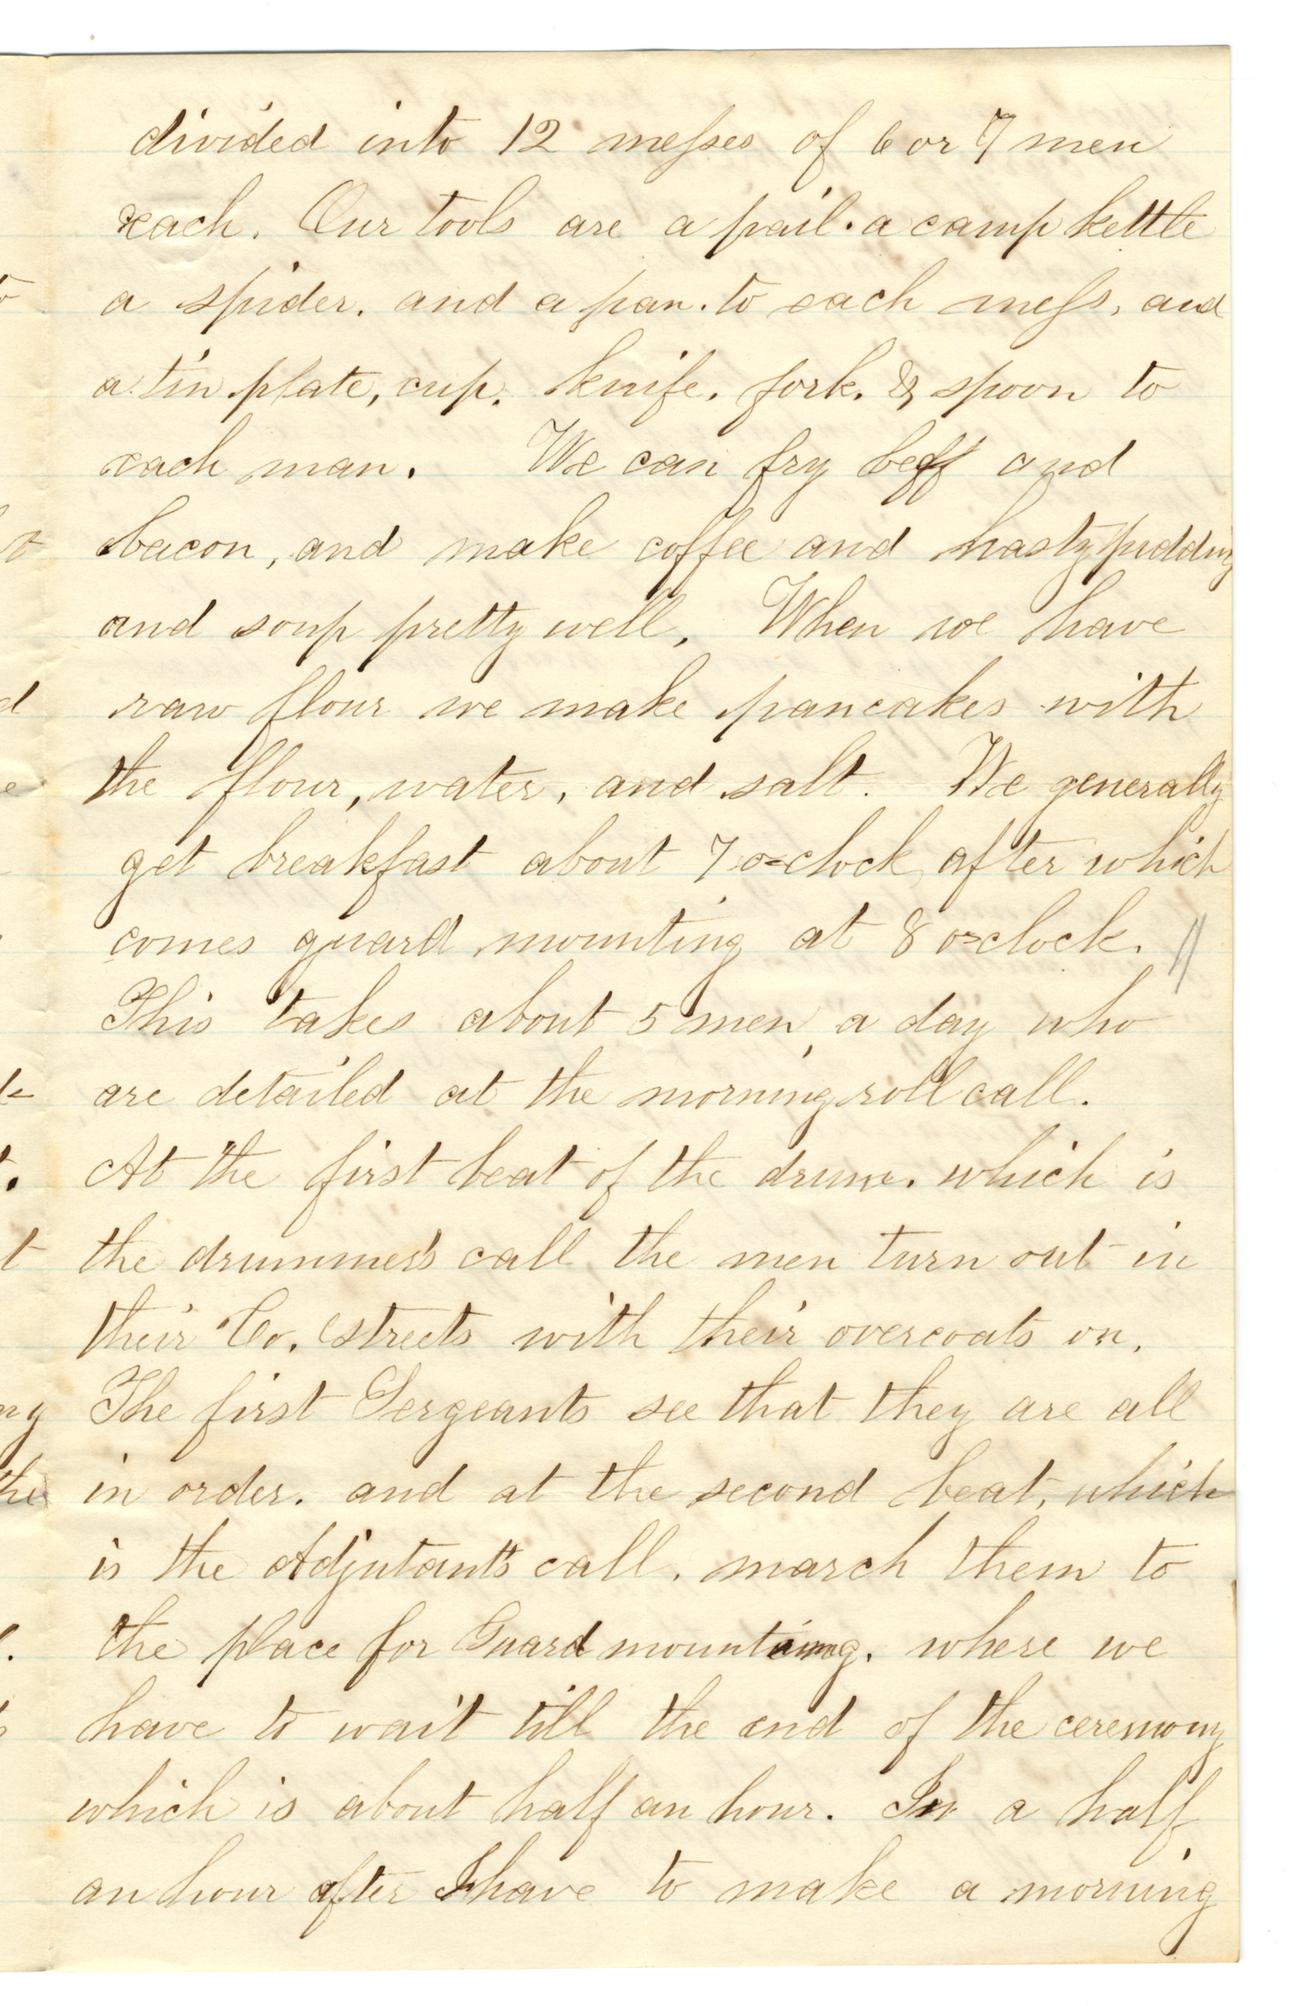 divided into 12 messes of 6 or 7 men
each. Our tools are a pail. a camp kettle
a spider. and a pan. to each mess, and
a tin plate, cup. knife. fork. & spoon to
each man. We can fry beff and
bacon, and make coffee and hasty pudding
and soup pretty well. When we have
raw flour we make pancakes with
the flour, water, and salt. We generally
get breakfast about 7 o=clock after which
comes guard mounting at 8 o=clock. //
This takes about 5 men, a day who
are detailed at the morning roll call.
At the first beat of the drum. which is
the drummer's call the men turn out in
their Co. streets with their overcoats on.
The first Sergeants see that they are all
in order. and at the second beat, which
is the Adjutant's call. march them to
the place for Guard mounting. where we
have to wait till the end of the ceremony
which is about half an hour. In a half
an hour after I have to make a morning